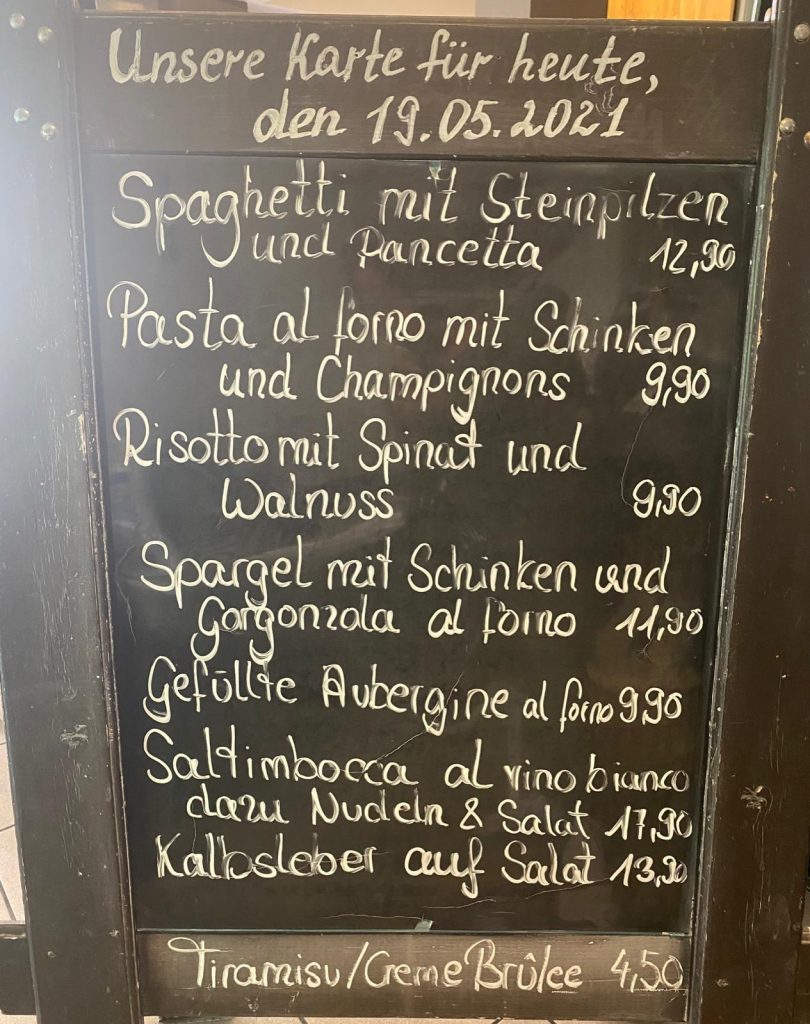 Unsere Karte für heute,
den 19.05.2021
Spaghetti mit Steinpilzen
und Pancetta 12,90
Pasta al forno mit Schinken
und Champignons 9,90
Risotto mit Spinat und
Walnuss 9,90
Spargel mit Schinken und
Gorgonzola al forno 11,90
Gefüllte Aubergine al forno 9,90
Saltimbocca al vino bianco
dazu Nudeln & Salat 17,90
Kalbsleber auf Salat 13,90
Tiramisu/Creme Brûlee 4,50